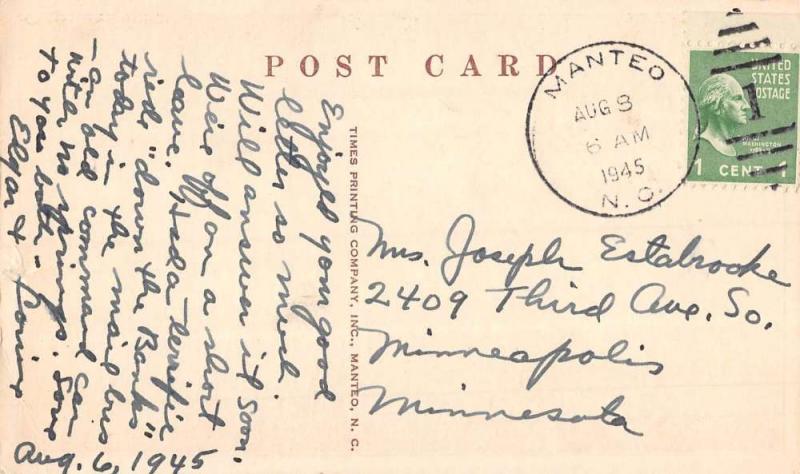 POST CARD
MANTEO
AUG 8
6 AM
1945
N. C.
UNITED
STATES
POSTAGE
WASHINGTON
1 CENT 1
TIMES PRINTING COMPANY, INC., MANTEO, N. C.
Enjoyed your good
letter so much.
Will answer it soon.
We're off on a short
leave. Had a terrific
ride "down the Banks"
today in the mail bus
- an old command car
with no springs. Love
to you both -
Edgar &
Aug. 6, 1945
Mrs. Joseph Estabrooke
2409 Third Ave. So.
Minneapolis
Minnesota